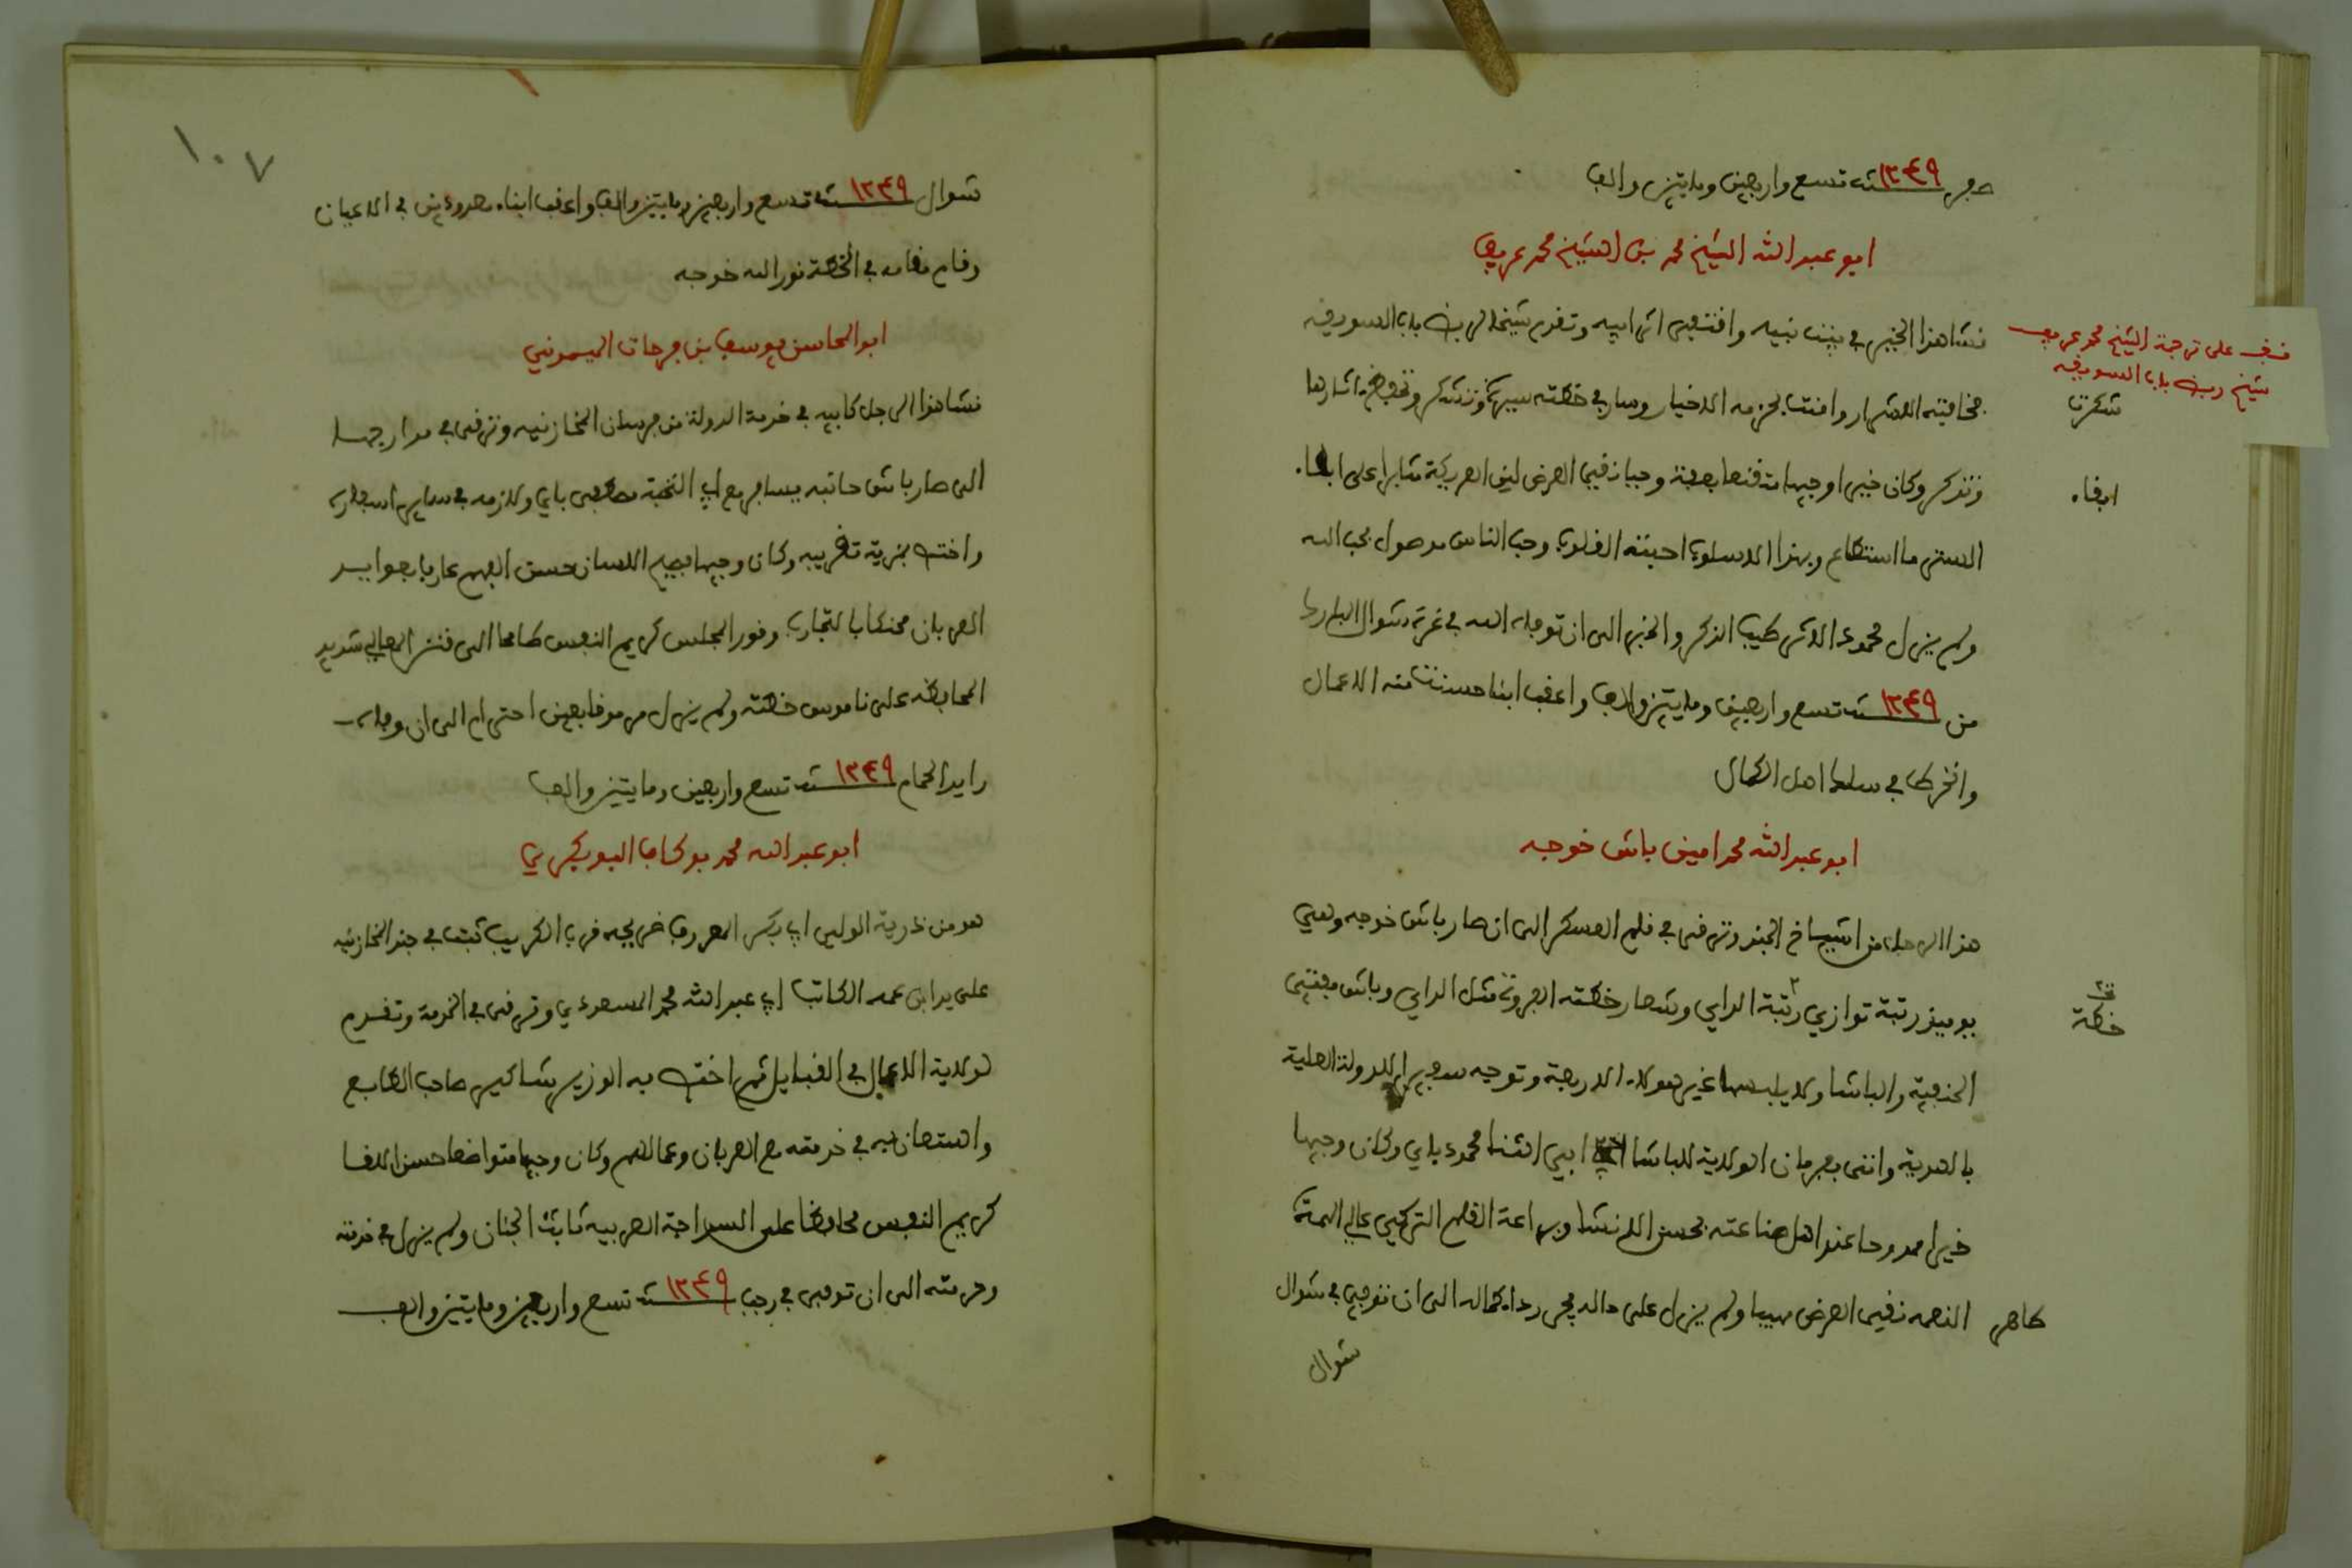 صفر ١٢٤٩ سنة تسع واربعين ومايتين والف
ابو عبد الله الشيخ محمد بن الشيخ محمد عريف
نشا هذا الخير في بيت نبيه واقتفى اثر ابيه وتقدم شيخا لربض باب السويقه
فخافته الاشرار وامنت بحزمه الاخيار وسار في خطته سيرة تشكر وتحفظ مآثارها
وتذكر وكان خيرا وجيها متقنعا بعفة وحيا نقي العرض لين العريكة مثابرا على ابقاء
الستر ما استطاع وبهذا الاسلوب احبته القلوب وحب الناس موصول بحب الله
ولم يزل محمود الاثر طيب الذكر والخبر الى ان توفاه الله في غرة شوال المبارك
من ١٢٤٩ سنة تسع واربعين ومايتين والف واعقب ابنا حسنت منه الاعمال
وانخرط في سلك اهل الكمال
ابو عبد الله محمد امين باش خوجه
هذا الرجل من اشياخ الجند وترقى في قلم العسكر الى ان صار باش خوجه وهي
يوميذ رتبة توازي رتبة الداي وشعار خطته الفروة مثل الداي وباش مفتي
الحنفية والباشا ولا يلبسها غير هولاء الاربعة وتوجه سفيرا للدولة العلية
بالهدية واتى بفرمان الولاية للباشا ابي الثنا محمود باي وكان وجيها
خيرا ممدوحا عند اهل صناعته بحسن الانشا وبراعة القلم التركي عالي الهمة
طاهر النعمه نقي العرض مهيبا ولم يزل على حاله يجر رداء كماله الى ان توفي في شوال
شوال
قف على ترجمة الشيخ محمد عريف
شيخ ربض باب السويقه
شكرت
ابقاء
خطة
١٠٧
شوال ١٢٤٩ سنة تسع واربعين ومايتين والف واعقب ابناء معدودين في الاعيان
وقام مقامه في الخطة نور الله خوجه
ابو المحاسن يوسف بن فرحات الميموني
نشا هذا الرجل كابيه في خدمة الدولة من فرسان المخازنيه وترقى في مدارجها
الى صار باش حانبه يسافر مع ابي النخبة مصطفى باي ولازمه في ساير اسفاره
واختص بمزية تقريبه وكان وجيها فصيح اللسان حسن الفهم عارفا بعوايد
العربان محنكا بالتجارب وقور المجلس كريم النفس طامحا الى قنن المعالي شديد
المحافظه على ناموس خطته ولم يزل مرموقا بعين احترام الى ان وفاه
رايد الحمام ١٢٤٩ سنة تسع واربعين ومايتين والف
ابو عبد الله محمد بوكاف البوبكري
هو من ذرية الولي ابي بكر المعروف ضريحه قرب الكريب ثبت في جند المخازنيه
على يد ابن عمه الكاتب ابي عبد الله محمد المسعودي وترقى في الخدمة وتقدم
لولاية الاعمال في القبايل ثم اختص به الوزير شاكير صاحب الطابع
واستعان به في خدمته مع العربان وعمالهم وكان وجيها متواضعا حسن اللقا
كريم النفس محافظا على السراحة العربيه ثابت الجنان ولم يزل في خدمته
وحرمته الى ان توفي في رجب ١٢٤٩ سنة تسع واربعين ومايتين والف